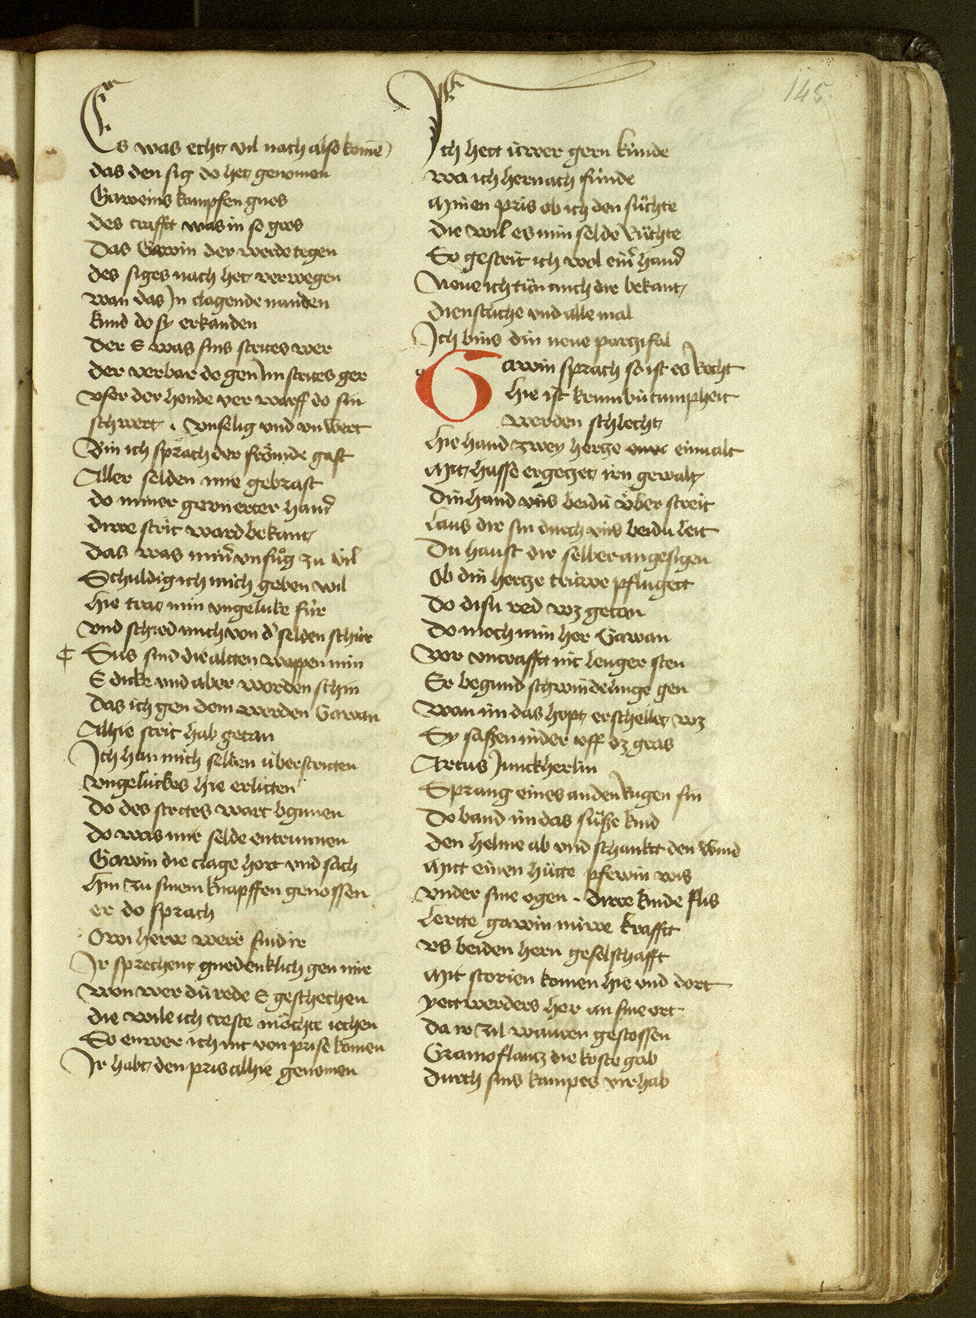 145
Es was echt vil nach also komē
das den sig do het genomen
Gaweins kampfen gnos
des crafft was in so gros
Das Gawin der werde tegen
des siges nach het verwegen
wan das In clagende nanden
kind do sy erkanden
Der E was sins strites wer
der verbar do gen Im strites ger
vser der hende ver warff do sin
schwert . vnselig vnd vn wert
Bin ich sprach der frömde gast
Aller selden mir gebrast
do miner gunerter hand
dirre strit ward bekant
das was minr vnfůg zu vil
Schuldig ich mich geben wil
hie trat min vngeluke für
vnd schied mich von d' selden schür
Sus sind die altten wappen min
E dicke vnd aber worden schin
das ich gen dem werden Gawan
Alhie strit hab getan
Ich han mich selben überstritten
vngelückes hie erlitten
do des strites wart bgunen
do was mir selde entrunnen
Gawin die clage hort vnd sach
hin zu sinem knapffen genossen
er do sprach
Owi herre werr sind ir
Ir sprechent gnedenklich gen mir
wan wer dü rede E geschechen
die wile ich creffte möchte iechen
So enwer ich nit von prise komen
Ir habt den pris alhie genomen
Ich hett üwer gern künde
wa ich hernach fünde
Minen pris ob ich den sůchte
die wil es min selde růchte
So gestrit ich wol einr hand
Neue ich tůn auch dir bekant
dienstliche vnd alle mal
Ich bins din neue partzifal
Gawin sprach so ist es recht
hie ist krumbü tumpheit
werden schlecht
hie hand zwey hertze einualt
Mit hasse ertzeiget irn gewalt
din hand vns beidü über streit
laus dir sin durch vns beidü leit
Du haust dir selber angesigen
Ob din hertze trüwe pflugett
do disü red wz getan
do moch min her Gawan
vor vncrafft nit lenger sten
Er begund schwindelinge gen
wan im das hopt erschellet wz
Er sassen nider vff dz gras
Artus Junckherlin
Sprang eines anden Rugen sin
do band im das süsse kind
den helme ab vnd schankt den wind
Mitt einen hütte pfewin wis
vnder sine ogen . dirre kinde flis
lertte gawin nüwe krafft
vs beiden hern geselschafft
Mit storien komen hie vnd dort
yettwerders her an sine ort
da ir zil warren gestossen
Gramoflantz die koste gab
durch sins kampes vrhab